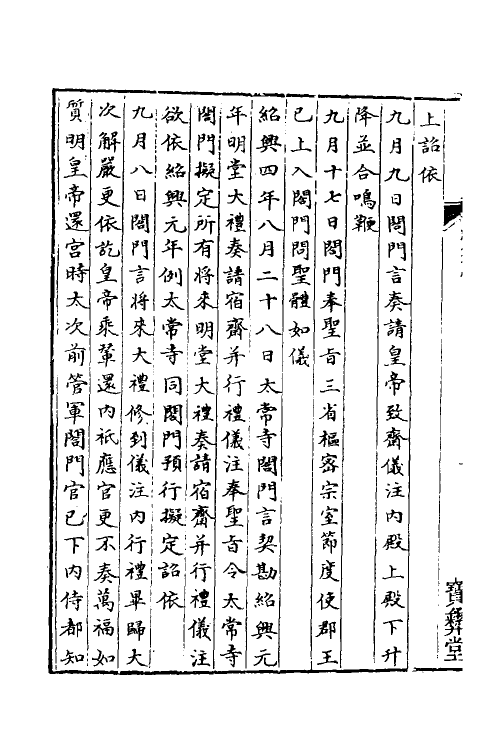 上詔依
九月九日閤門言奏請皇帝致齋儀注内殿上殿下升
降並合鳴鞭
九月十七日閤門奉聖旨三省樞密宗室節度使郡王
已上入閤門問聖體如儀
紹興四年八月二十八日太常寺閤門言契勘紹興元
年明堂大禮奏請宿齋并行禮儀注奉聖旨令太常寺
閤門擬定所有將來明堂大禮奏請宿齋并行禮儀注
欲依紹興元年例太常寺同閤門預行擬定詔依
九月八日閤門言將來大禮修到儀注内行禮畢歸大
次解嚴更依訖皇帝乘輦還内祇應官更不奏萬福如
質明皇帝還宮時太次前管軍閤門官已下内侍都知
寶彝堂